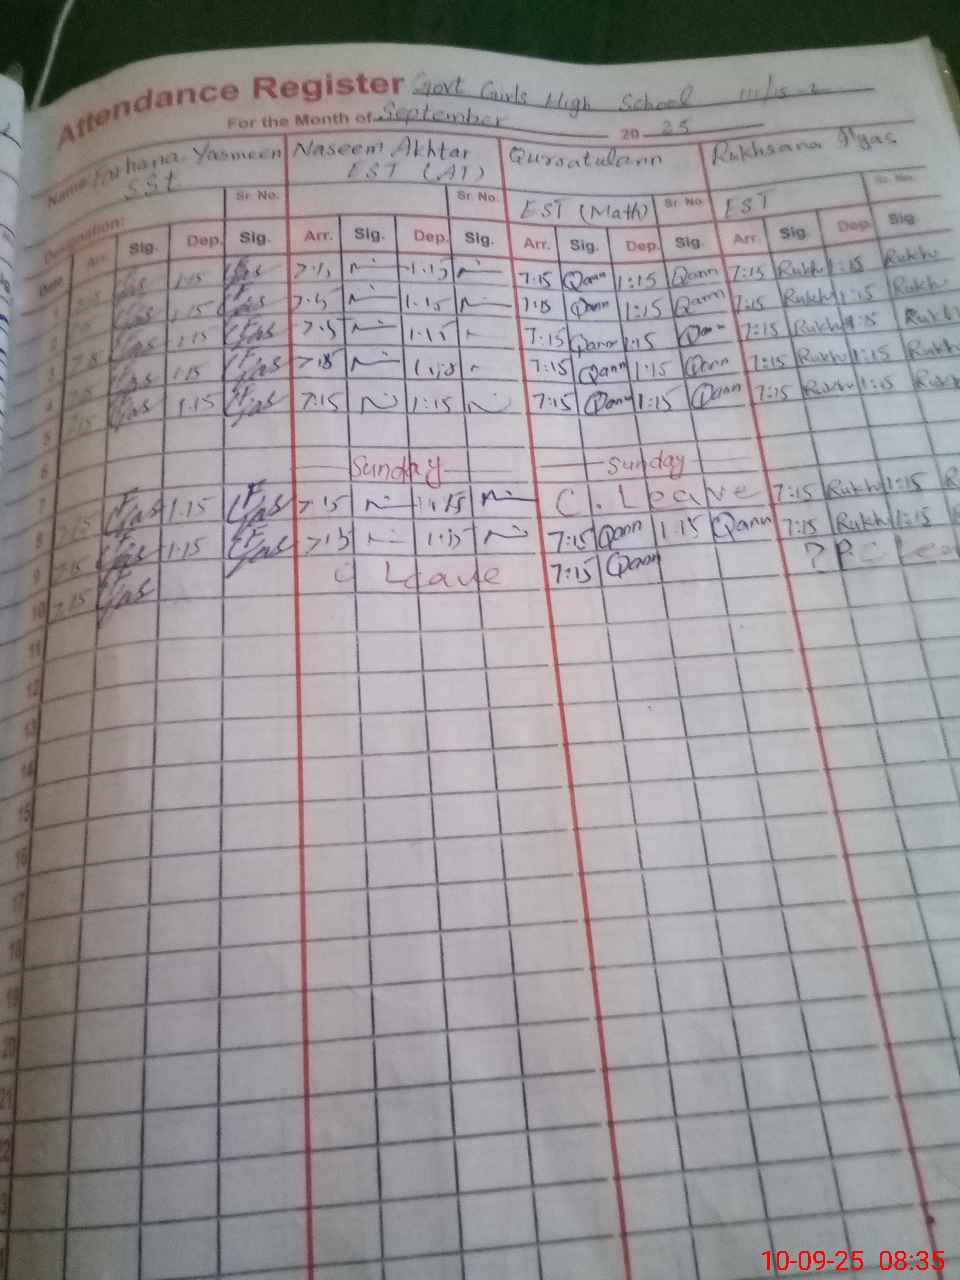 Attendance Register Govt Girls High School 111/15-L
For the Month of September 2025
Name Farhana Yasmeen Naseem Akhtar Qurratulann Rukhsana
SSt EST (AT) EST (Math) EST
Designation: Sr. No. Sr. No. Sr. No. Sr. No.
Date Arr. Sig. Dep. Sig. Arr. Sig. Dep. Sig. Arr. Sig. Dep. Sig. Arr. Sig. Dep. Sig.
1 7:15 1:15 7:15 1:15 7:15 Qann 1:15 Qann 7:15 Rukh 1:15 Rukh
2 1:15 1:15 7:15 Qann 1:15 Qann 7:15 Rukh 1:15 Rukh
3 1:15 1:15 7:15 Qann 1:15 Qann 7:15 Rukh 1:15 Rukh
4 1:15 7:15 Qann 1:15 Qann 7:15 Rukh 1:15 Rukh
5 7:15 1:15 7:15 1:15 7:15 Qann 1:15 Qann 7:15 Rukh 1:15 Rukh
6
7 Sunday Sunday
8 7:15 1.15 7:15 1:15 C. Leave 7:15 Rukh 1:15
9 7:15 1.15 7:15 1:15 7:15 Qann 1:15 Qann 7:15 Rukh 1:15
10 7:15 C Leave 7:15 Qann
11
12
13
14
15
16
17
18
19
20
21
22
10-09-25 08:35